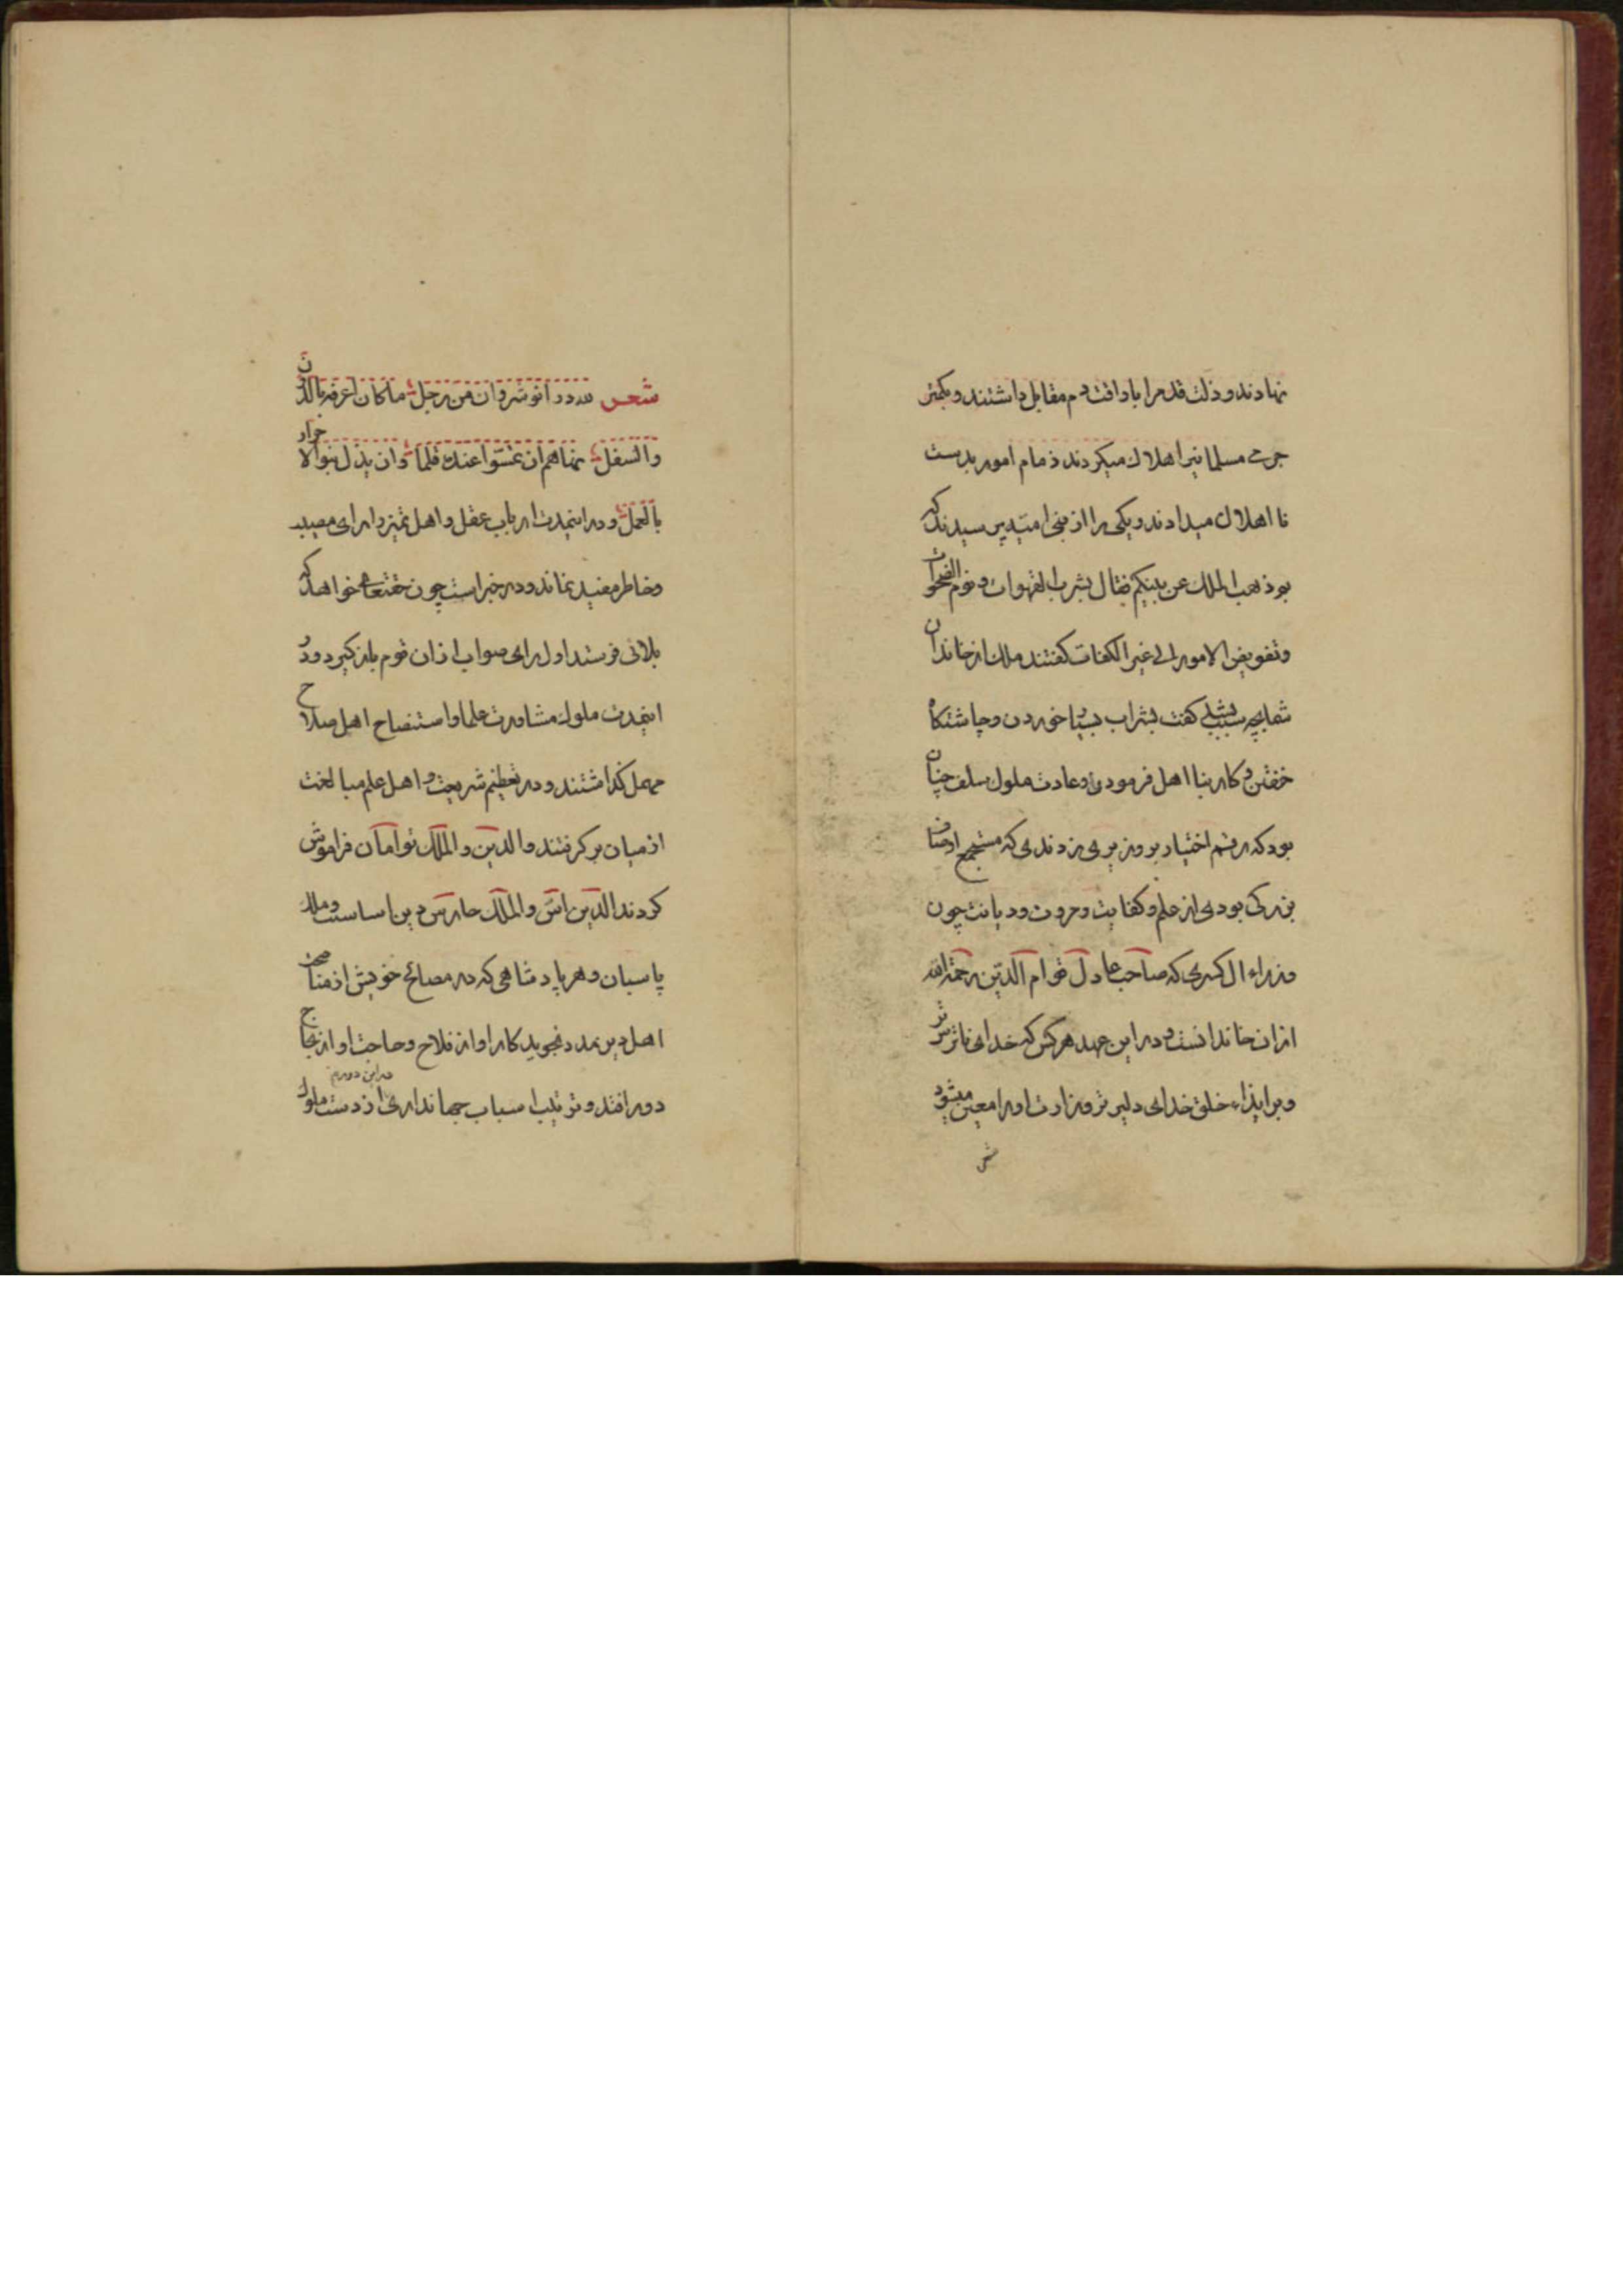 نهادند و ذلت قدم را با راقت دم مقابل داشتند و بکمتر
جرمی مسلمانیرا هلاک میکردند زمام امور بدست
نا اهلان میدادند و یکی را از بنی امیه پرسیدند که
بم ذهب الملک عن بینکم فقال بشرب القهوات و نوم الضحوات
و تفویض الامور الی غیر الکفات گفتند ملک از خاندان
شما بچه سبب بشد گفت بشراب بسیار خوردن و چاشتگاه
خفتن و کار بنا اهل فرمودن و عادت ملوک سلف چنان
بود که رقم اختیار بر وزیری زدندی که مستجمع اوصاف
بزرگی بودی از علم و کفایت و مروت و دیانت چون
وزراء ال کسری که صاحب عادل قوام الدین رحمه الله
ازان خاندانست و در این عهد هر کس که خدای ناترس تر
و بر ایذاء خلق خدای دلیر تر وزارت او را معین میشود
شعر
شعر لله در انوشروان من رجل ما کان اعرفه بالدون
والسفل نهاهم ان یمسوا عنده قلما وان یذل بنو الاحرار
بالعمل و در اینمدت ارباب عقل و اهل تمیز را رای مصیب
و خاطر مفید نماند و در خبر است چون حقتعالی خواهد که
بلائی فرستد اول رای صواب ازان قوم باز گیرد و در
اینمدت ملوک مشاورت علما و استنصاح اهل صلاح
مهمل گذاشتند و در تعظیم شریعت و اهل علم مبالغت
از میان بر گرفتند و الدین و الملک توامان فراموش
کردند الدین اس و الملک حارس دین اساست و ملک
پاسبان و هر پادشاهی که در مصالح خویش از مناصحت
اهل دین مدد نجوید کار او از فلاح و حاجت او از نجاح
دور افتد و ترتیب اسباب جهانداری از دست ملوک
در این دوره